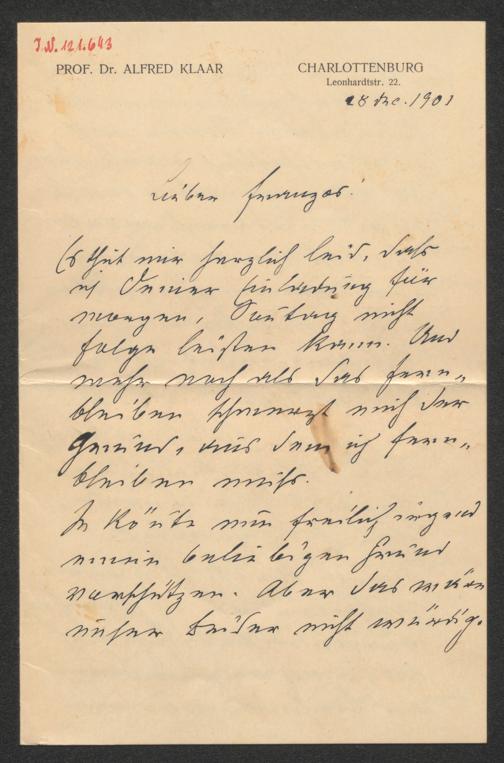 I.N. 121.643
PROF. Dr. ALFRED KLAAR
CHARLOTTENBURG
Leonhardtstr. 22.
28 Dec. 1901
Lieber Franzos!
Es thut mir herzlich leid, dass
ich Deiner Einladung für
morgen, Sonntag nicht
folge leisten kann. Und
mehr noch als das Fern-
bleiben schmerzt mich der
Grund, aus dem ich fern-
bleiben muss.
Ich könnte nun freilich irgend
einen beliebigen Grund
vorschützen. Aber das wäre
unser Beider nicht würdig.